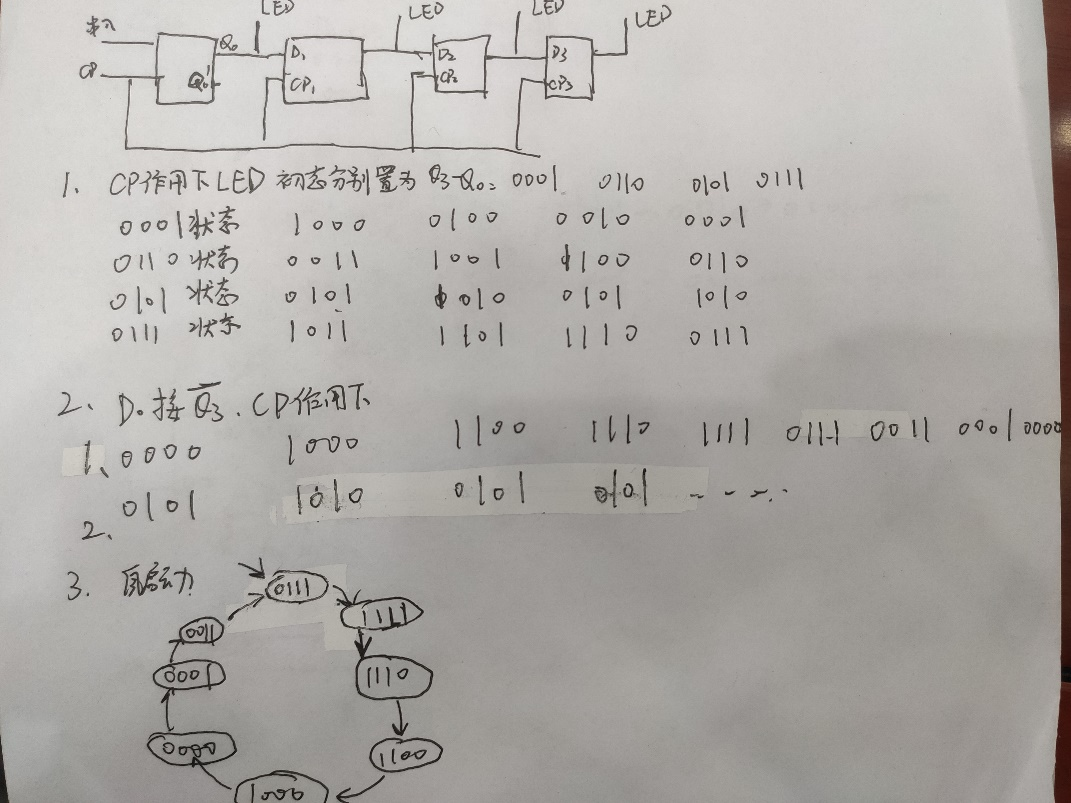 LED LED LED LED
串入 Q₀ D₁ D₂ D₃
CP Q₀' CP₁ CP₂ CP₃
1、 CP作用下LED 初态分别置为 Q₃-Q₀: 0001 0110 0101 0111
0001状态 1000 0100 0010 0001
0110状态 0011 1001 1100 0110
0101状态 0101 1010 0101 1010
0111状态 1011 1101 1110 0111
2、 D₀接Q̅₃. CP作用下
1、0000 1000 1100 1110 1111 0111 0011 0001 0000
2. 0101 1010 0101 0101 -----
3. 自启动
0111
1111
0011
0001 1110
0000 1100
1000